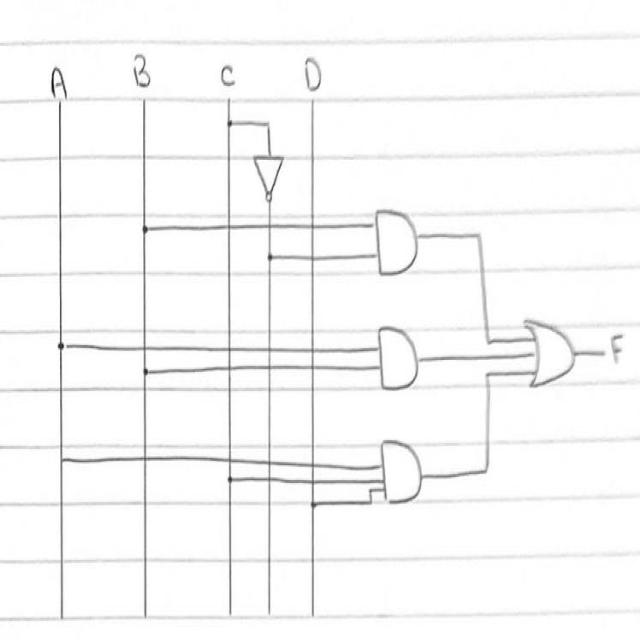 A B C D
F